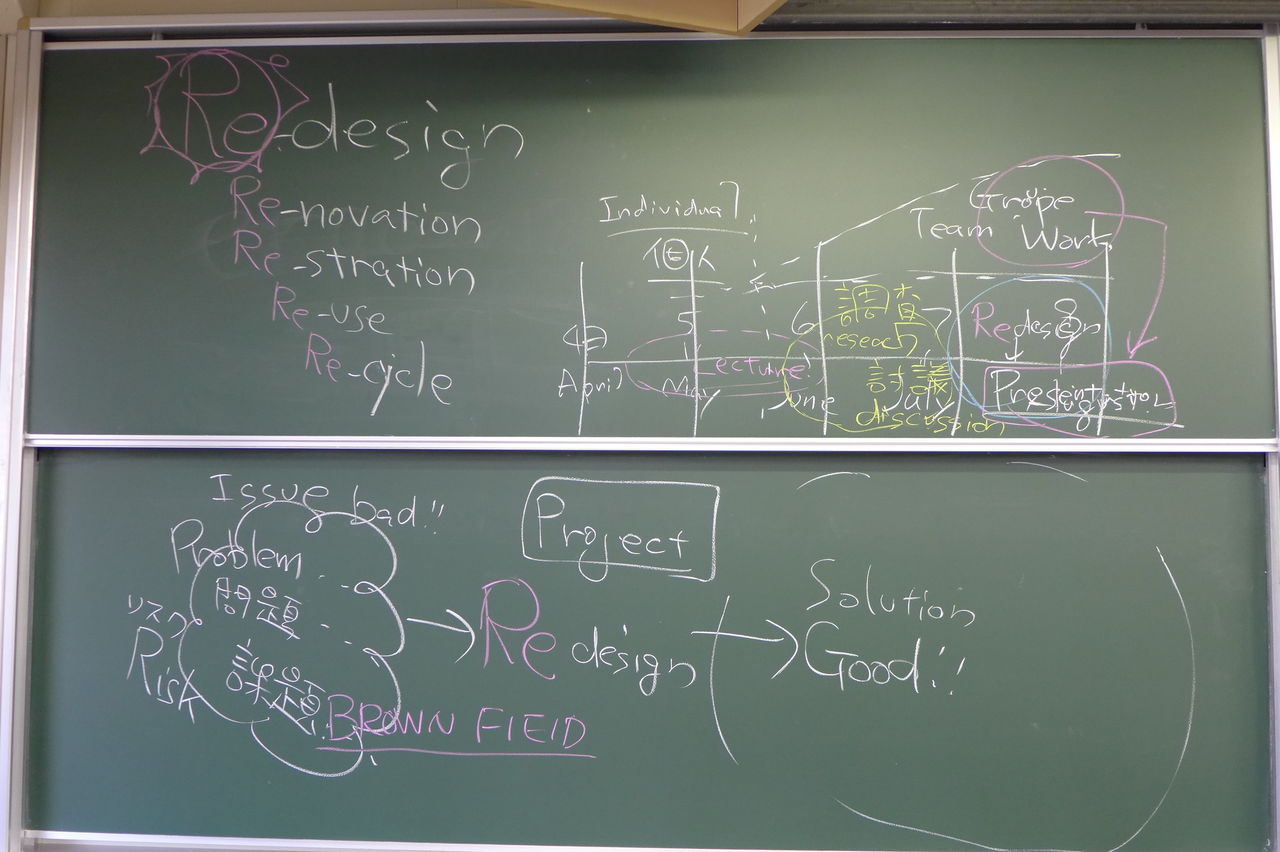 Re-design
Re-novation
Re-stration
Re-use
Re-cycle
Individual
個人
Grope
Team Work
4月
5
6
7
8
April
May
June
July
Lecture!
調査
reseach
討議
discussion
Redesign
Presentation
Issue bad!!
Problem
問題
リスク
Risk
課題
BROWN FIElD
Project
Redesign
Solution
Good!!